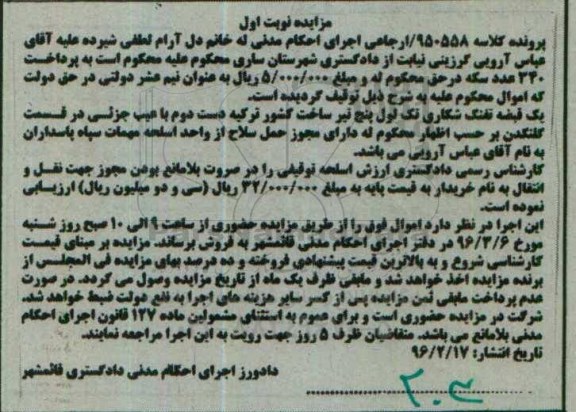 مزایده نوبت اول
پرونده کلاسه ۹۵۰۵۵۸/ارجاعی اجرای احکام مدنی له خانم دل آرام لطفی شیرده علیه آقای
عباس آرویی گرزینی نیابت از دادگستری شهرستان ساری محکوم علیه محکوم است به پرداخت
۳۳۰ عدد سکه درحق محکوم له و مبلغ ۵/۰۰۰/۰۰۰ ریال به عنوان نیم عشر دولتی در حق دولت
که اموال محکوم علیه به شرح ذیل توقیف گردیده است.
یک قبضه تفنگ شکاری تک لول پنج تیر ساخت کشور ترکیه دست دوم با عیب جزئی در قسمت
گلنگدن بر حسب اظهار محکوم له دارای مجوز حمل سلاح از واحد اسلحه مهمات سپاه پاسداران
به نام آقای عباس آرویی می باشد.
کارشناس رسمی دادگستری ارزش اسلحه توقیفی را در صروت بلامانع بودن مجوز جهت نقل و
انتقال به نام خریدار به قیمت پایه به مبلغ ۳۲/۰۰۰/۰۰۰ ریال (سی و دو میلیون ریال) ارزیابی
نموده است.
این اجرا در نظر دارد اموال فوق را از طریق مزایده حضوری از ساعت ۹ الی ۱۰ صبح روز شنبه
مورخ ۹۶/۳/۶ در دفتر اجرای احکام مدنی قائمشهر به فروش برساند. مزایده بر مبنای قیمت
کارشناسی شروع و به بالاترین قیمت پیشنهادی فروخته و ده درصد بهای مزایده فی المجلس از
برنده مزایده اخذ خواهد شد و مابقی ظرف یک ماه از تاریخ مزایده وصول می گردد. در صورت
عدم پرداخت مابقی ثمن مزایده پس از کسر سایر هزینه های اجرا به نفع دولت ضبط خواهد شد.
شرکت در مزایده حضوری است و برای عموم به استثنای مشمولین ماده ۱۲۷ قانون اجرای احکام
مدنی بلامانع می باشد. متقاضیان ظرف ۵ روز جهت رویت به این اجرا مراجعه نمایند.
تاریخ انتشار: ۹۶/۲/۱۷
دادورز اجرای احکام مدنی دادگستری قائمشهر